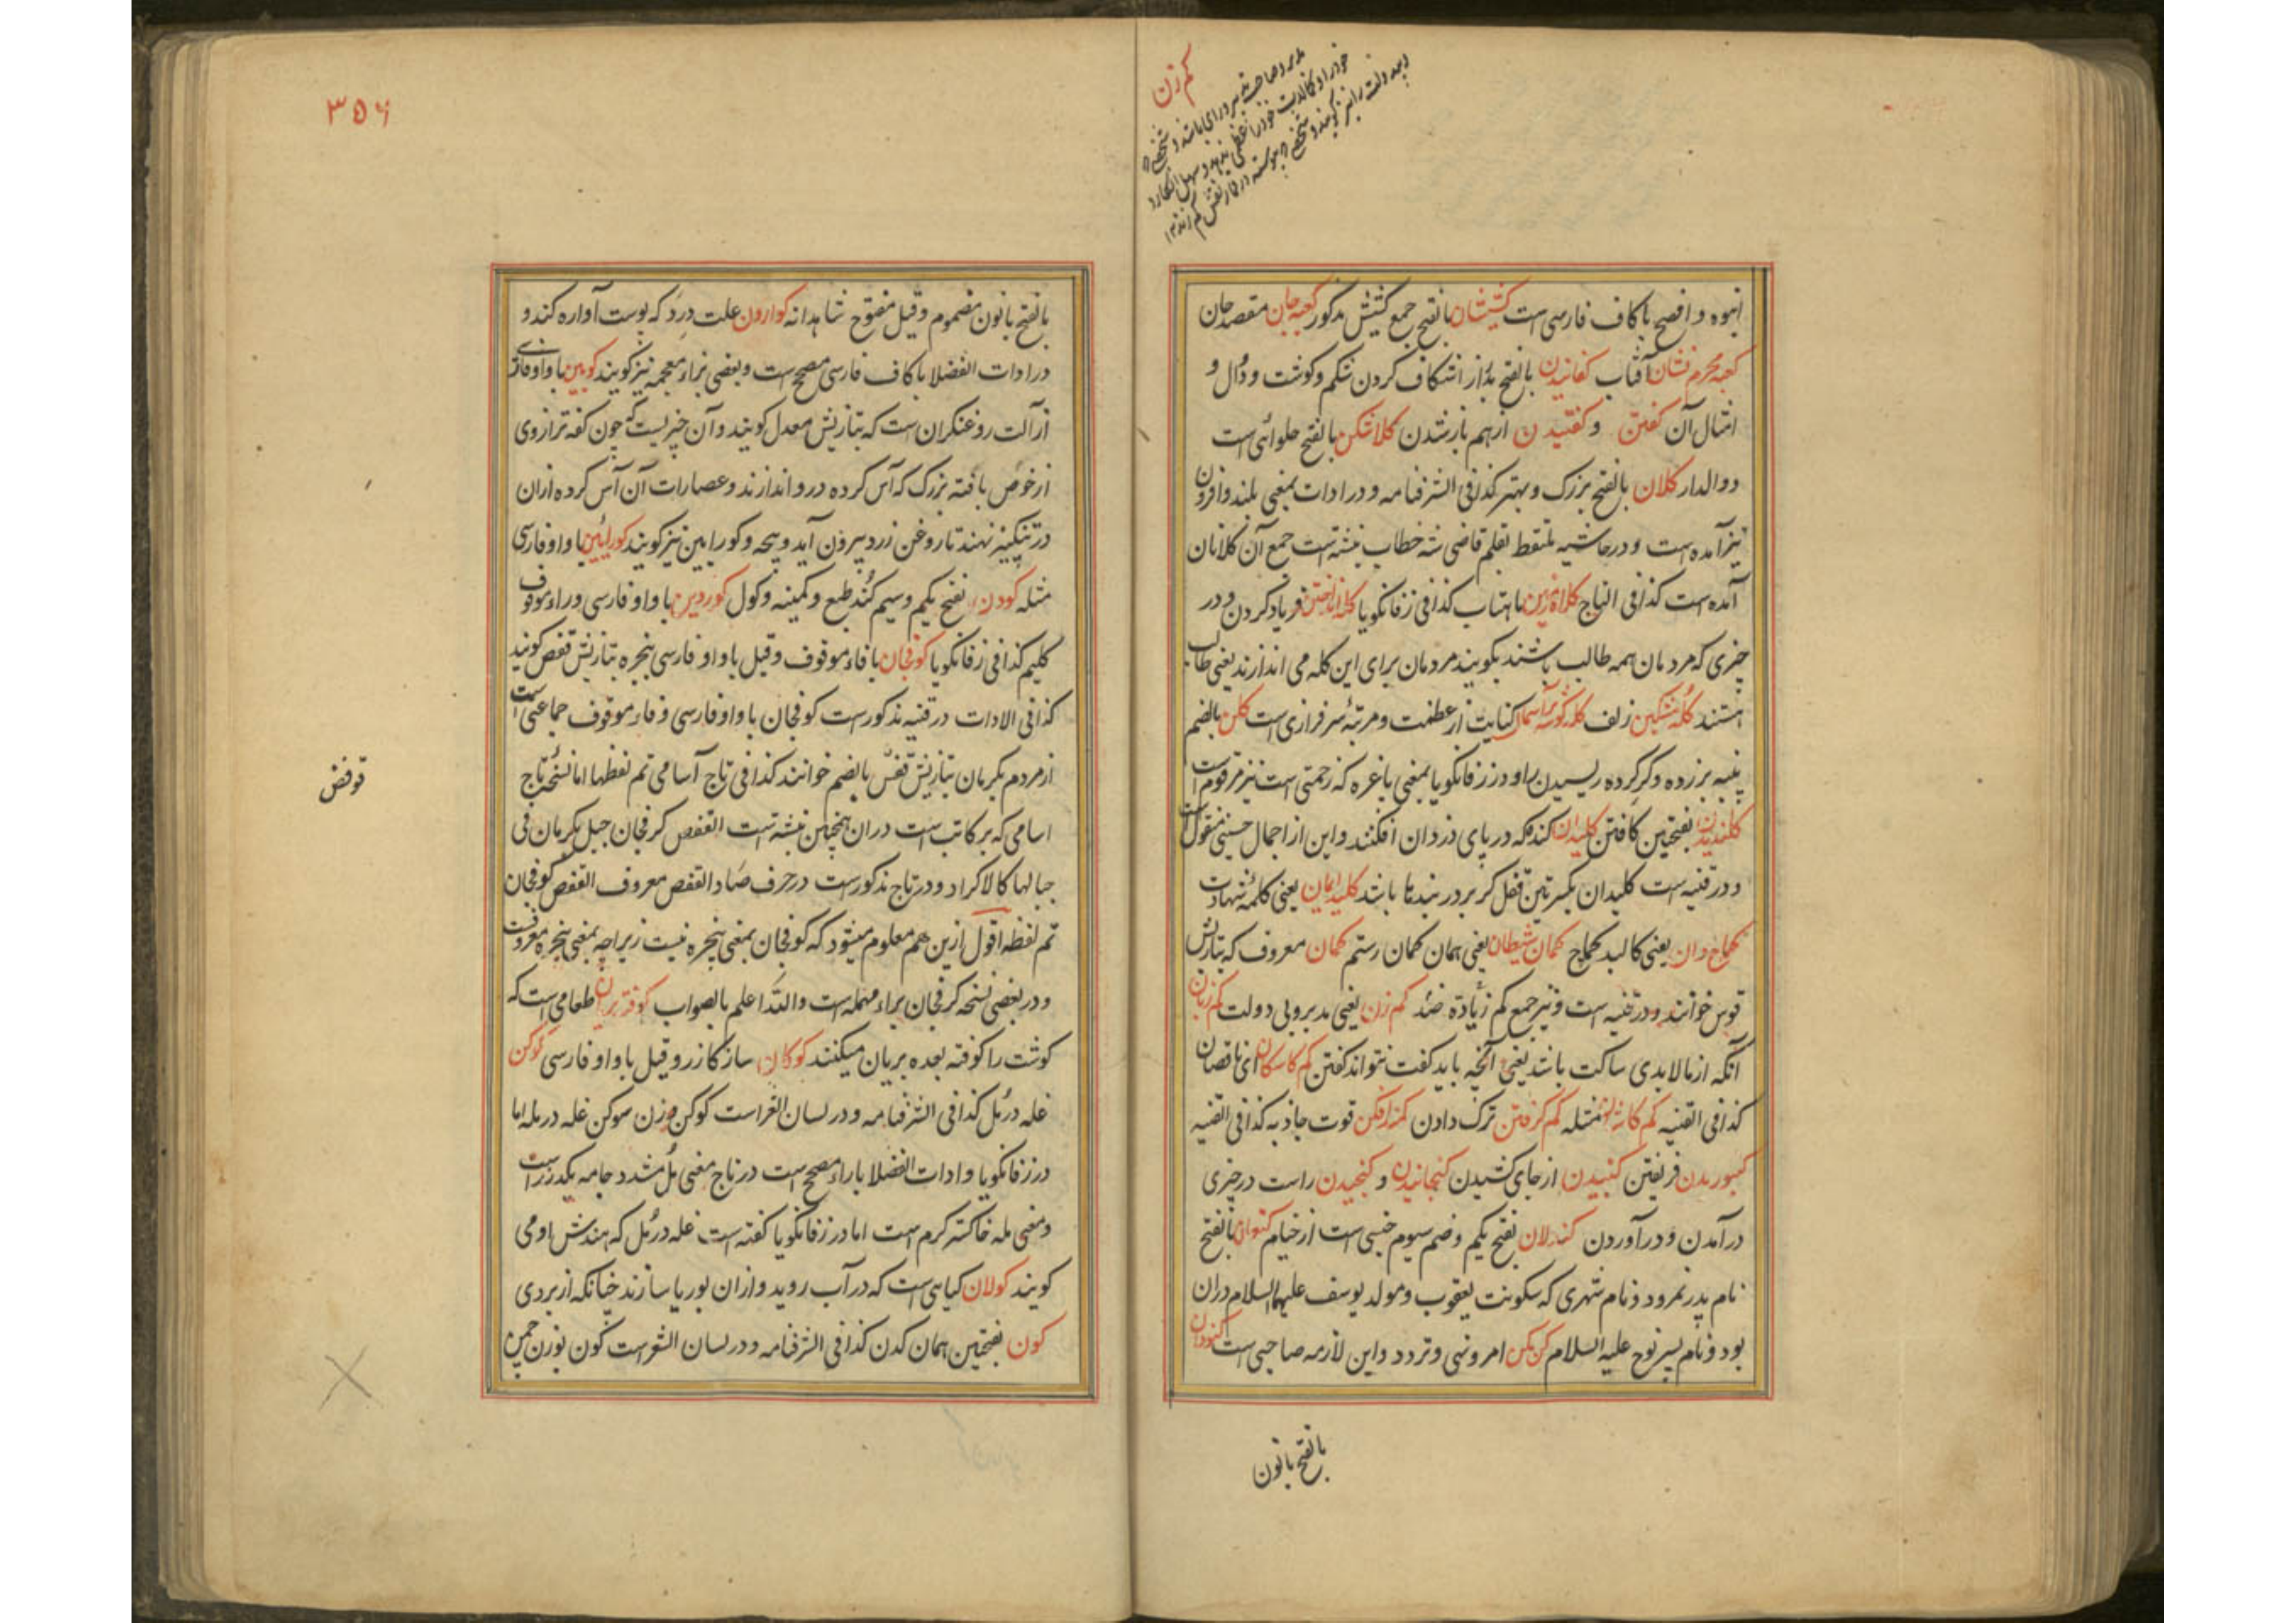 کم زن
مدبر و صاحب تدبیر و رای باشد و شخصی
خود را و کمالات خود را عظمی ننهد و سهل انگارد
و بیدولت را نیز گویند و شخصی که پیوسته در قمار نقش کم زند ۱۲
انبوه و افصح با کاف فارسی است کشیشان بالفتح جمع کشیش مذکور کعبه جان مقصد جان
کعبه محرم نشان آفتاب کفانیدن بالفتح شکاف کردن شکم و گوشت و دل و
امثال آن کفتن و کفتیدن از هم باز شدن کلاشکن بالفتح حلوائی است
دوالدار کلان بالفتح بزرگ و بهتر کذا فی الشرفنامه و در ادات بمعنی بلند و افزون
نیز آمده است و در حاشیه ملتقط بقلم قاضی شه خطاب نبشته است جمع آن کلانان
آمده است کذا فی التاج ماهتاب کذا فی زفانگویا کله انداختن فریاد کردن و در
چیزی که مردمان همه طالب باشند بگویند مردمان برای این کله می اندازند یعنی طالب
هستند کله مشکین زلف کله گوشه بر آسمان کنایت از عظمت و مرتبه سرفرازی است کلن بالضم
پنبه بر زده و گرد کرده ریسیدن را و در زفانگویا بمعنی باغره که زحمتی است نیز مرقوم است
کلندیدن بفتحتین کافتن کلیدان کندکه در پای دزدان افکنند و این از اجمال حسینی منقول است
و در قنیه است کلیدان بکسرتین قفل که بر در بندها باشد کلید ایمان یعنی کلمه شهادت
کماج دان یعنی کالبد کماج کمان شیطان یعنی همان کمان رستم کمان معروف که بتازیش
قوس خوانند و در قنیه است و نیز جمع کم زیاده ضد کم زن یعنی مدبر و بی دولت کم زبان
آنکه از مالابدی ساکت باشد یعنی آنچه باید گفت نتواند گفتن کم کاسکان ای ناقصان
کذا فی القنیه مثله کم گرفتن ترک دادن قوت جاذبه کذا فی القنیه
فریفتن کنبیدن از جای کشیدن کنجانیدن و کنجیدن راست در چیزی
در آمدن و در آوردن کندلان بفتح یکم و ضم سیوم خیمی است از خیام کنعان بالفتح
نام پدر نمرود و نام شهری که سکونت یعقوب و مولد یوسف علیهما السلام دران
بود و نام پسر نوح علیه السلام کن مکن امر و نهی و تردد و این لازمه صاحبی است کنودان
بالفتح بانون
۳۵۶
بالفتح بانون مضموم و قیل مفتوح شاهدانه کوارون علت درد که پوست آواره کند و
در ادات الفضلا با کاف فارسی مصحح است و بعضی بزاء معجمه نیز گویند کوبین با واو فارسی
از آلت روغنگران است که بتازیش معدل گویند و آن چیزیست که چون کفه ترازوی
از خوص بافته بزرگ که آس کرده در و اندازند و عصارات آن آس کرده ازان
در تنگیز نهند تا روغن زرد بیرون آید و پیچه و کورابین نیز گویند کورائین با واو فارسی
مثله کودن بفتح یکم و سیم کند طبع و کمینه و کول کوردین با واو فارسی و راء موقوف
کلیم کذا فی زفانگویا کوفجان با فاء موقوف و قیل با واو فارسی پنجره بتازیش قفص گویند
کذا فی الادات در قنیه مذکورست کوفجان با واو فارسی و فاء موقوف جماعتی است
از مردم بکرمان بتازیش قفس بالضم خوانند کذا فی تاج آسامی تم لفظها اما نسخه تاج
اسامی که بر کاتب است دران همچنین نبشته است القفص کرفجان جبل بکرمان فی
جبالها کالاکراد و در تاج مذکورست در حرف صاد القفص معروف القفص کوفجان
تم لفظه اقول ازین هم معلوم میشود که کوفجان بمعنی پنجره نیست زیرا چه بمعنی پنجره معروفست
و در بعضی نسخه کرفجان براء مهمله است والله اعلم بالصواب کوفته بریان طعامی است که
گوشت را کوفته بعده بریان میکنند کوکان ساز گازر و قیل با واو فارسی کوکن
غله درمل کذا فی الشرفنامه و در لسان الشعراست کوکن وزن سوکن غله در مله اما
در زفانگویا و ادات الفضلا با راء مصحح است در تاج معنی مل مشدد جامه یکدرز است
و معنی مله خاکستر گرم است اما در زفانگویا گفته است غله درمل که هندش اومی
گویند کولان گیاهی است که در آب روید و ازان بوریا سازند چنانکه از بردی
کون بفتحتین همان کدن کذا فی الشرفنامه و در لسان الشعراست کون بوزن چمن
قوفض